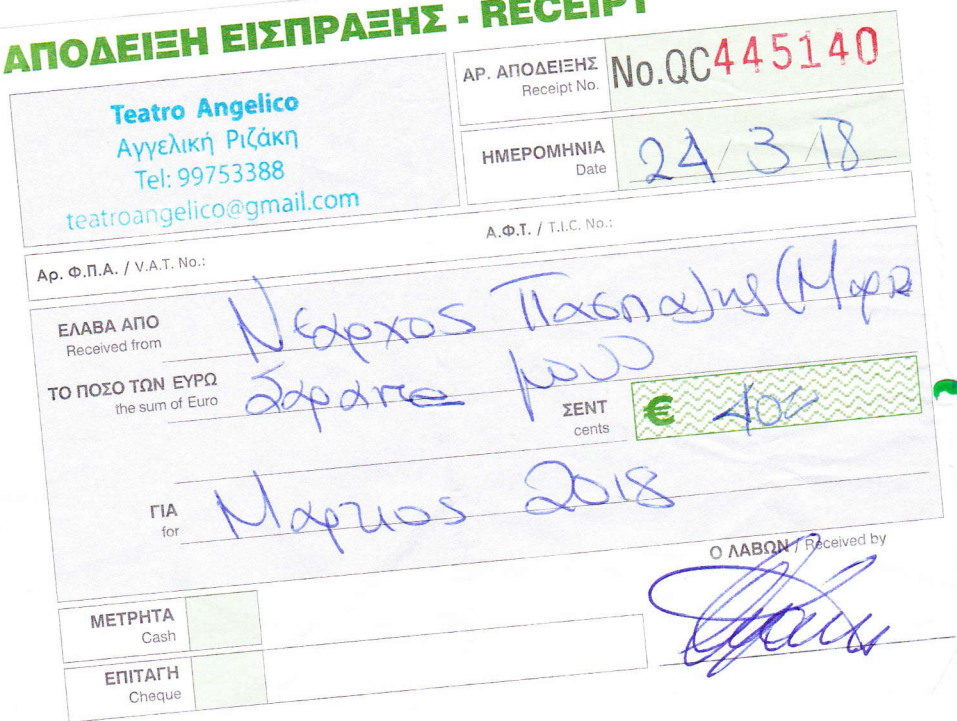 ΑΠΟΔΕΙΞΗ ΕΙΣΠΡΑΞΗΣ - RECEIPT
Teatro Angelico
Αγγελική Ριζάκη
Tel: 99753388
teatroangelico@gmail.com
ΑΡ. ΑΠΟΔΕΙΞΗΣ
Receipt No.
No.QC445140
ΗΜΕΡΟΜΗΝΙΑ
Date
24/3/18
Αρ. Φ.Π.Α. / V.A.T. No.:
Α.Φ.Τ. / T.I.C. No.:
ΕΛΑΒΑ ΑΠΟ
Received from
Νέαρχος Πασπαλής
ΤΟ ΠΟΣΟ ΤΩΝ ΕΥΡΩ
the sum of Euro
Σαράντα μόνο
ΣΕΝΤ
cents
€ 40
ΓΙΑ
for
Μάρτιος 2018
Ο ΛΑΒΩΝ / Received by
ΜΕΤΡΗΤΑ
Cash
ΕΠΙΤΑΓΗ
Cheque